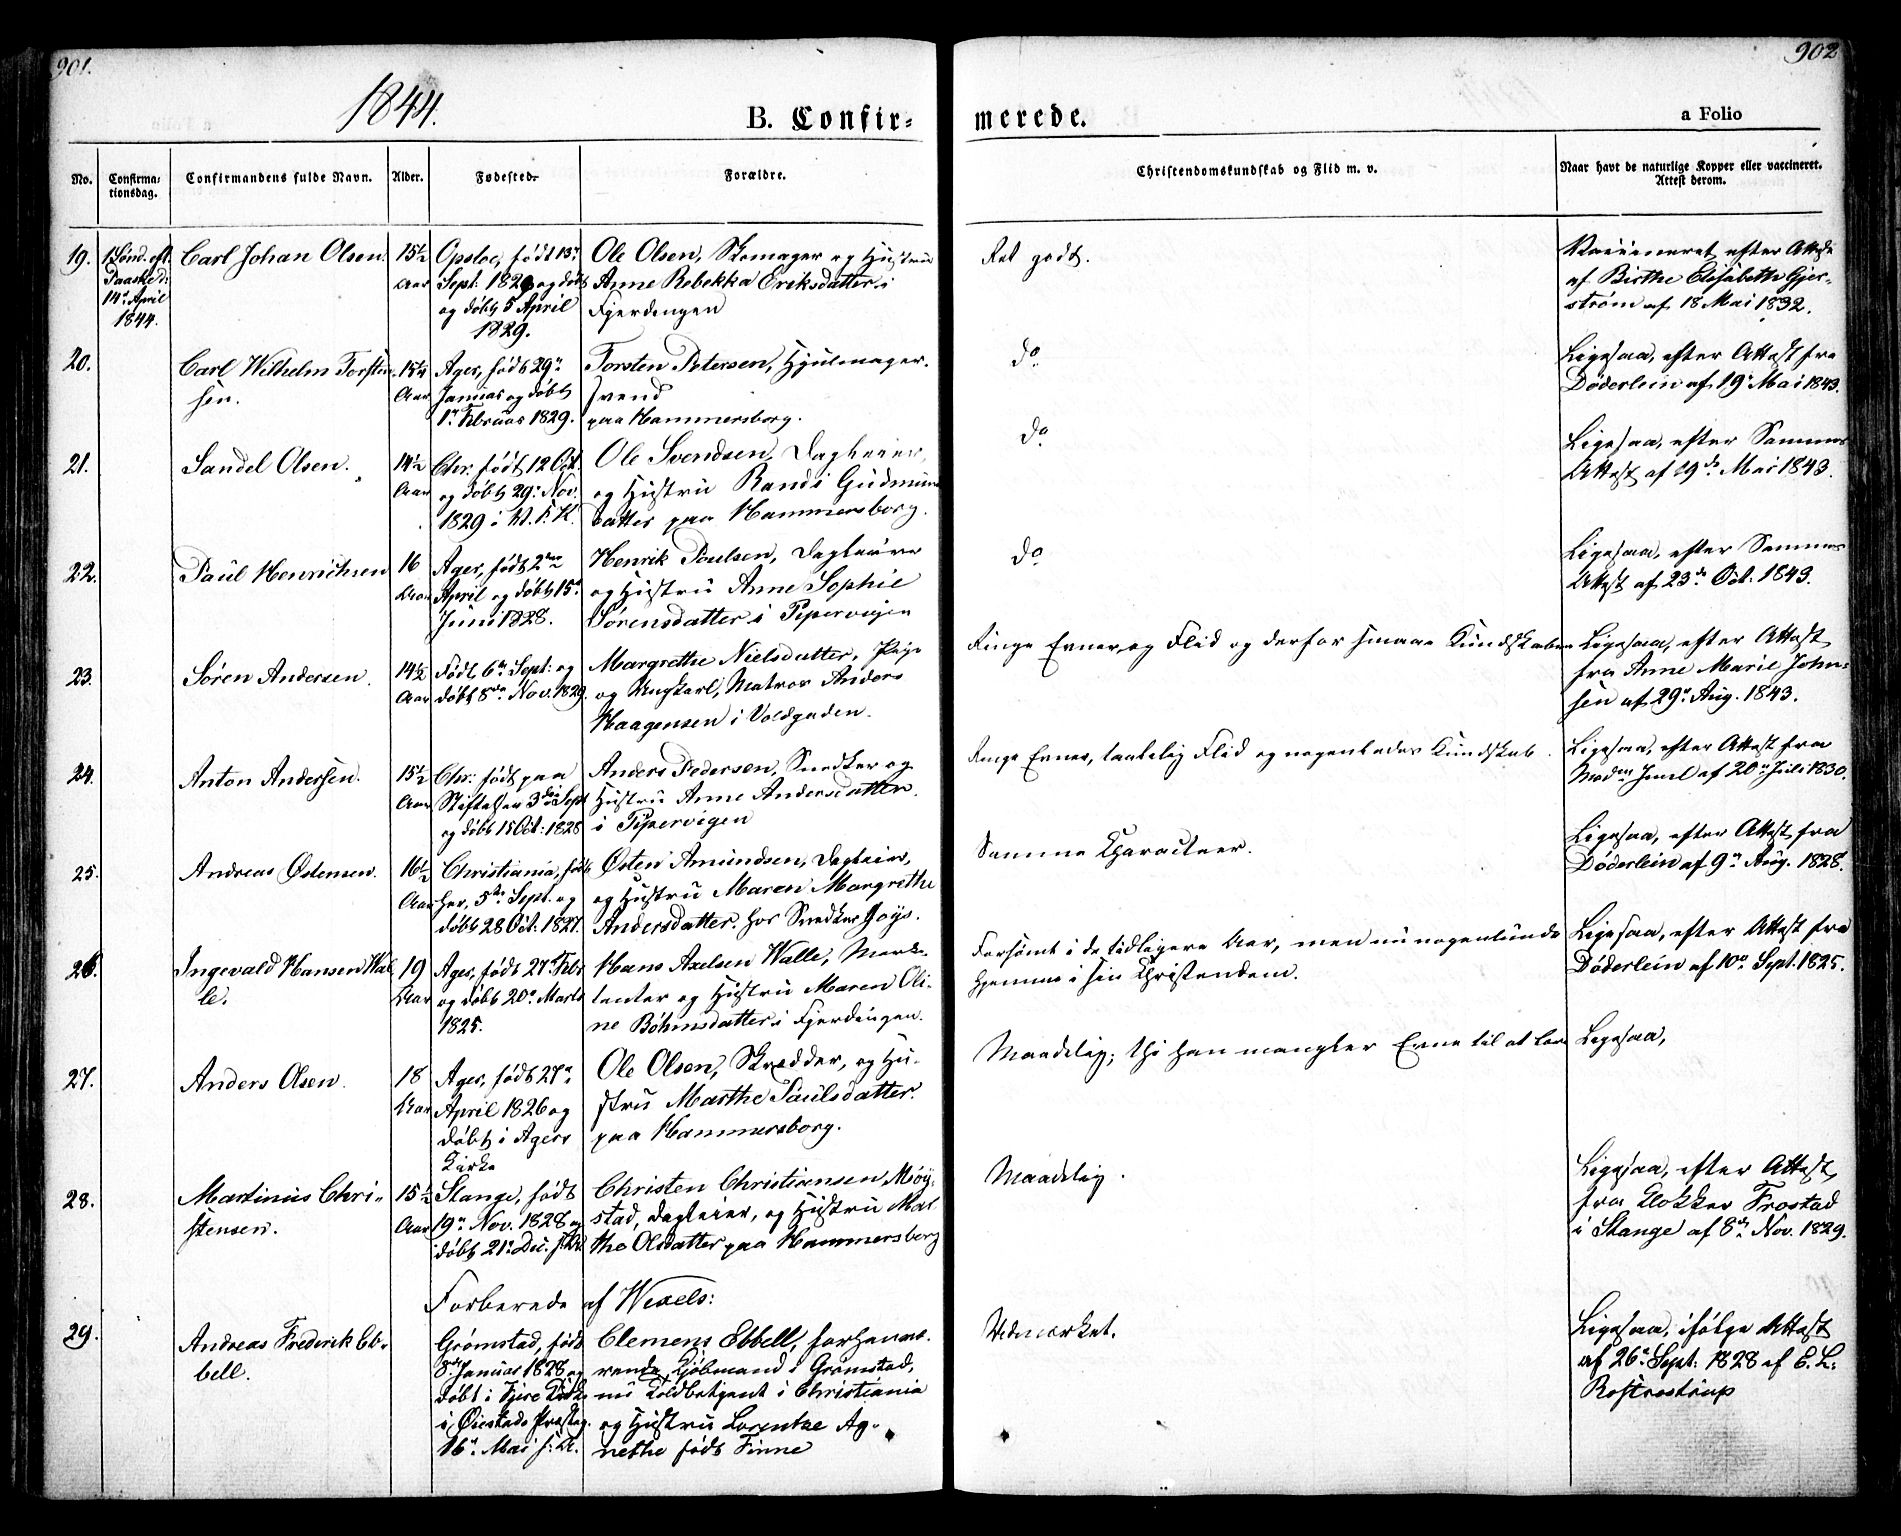 901.
902
1844.
B. Confir-
merede.
a Folio
No.
Confirma-
tionsdag.
Confirmandens fulde Navn.
Alder.
Fødested.
Forældre.
Christendomskundskab og Flid m. v.
Naar havt de naturlige Kopper eller vaccineret.
Attest derom.
19.
1 Sønd. eft.
Paaske d:
14de April
1844.
Carl Johan Olsen.
15½
Aar
Opsloe, født 13de
Sept: 1828 og døbt
og døbt 5 April
1829.
Ole Olsen, Skomager og Hustru
Anne Rebekka Eriksdatter i
Fjerdingen
Ret godt.
Vaccineret efter Attest
af Birthe Elisabeth Gjer-
strøm af 18 Mai 1832.
20.
Carl Wilhelm Torsten-
sen.
15¼
Aar
Ager, født 29de
Januar og døbt
1ste Februar 1829.
Torsten Petersen, Hjulmager-
svend
paa Hammersborg.
do
Ligesaa, efter Attest fra
Döderlein af 19de Mai 1843.
21.
Sandel Olsen.
14½
Aar
Chr. født 12 Oct.
og døbt 29de Nov.
1829 i V. F. K.
Ole Svendsen, Dagleier,
og Hustru Randi Gudmunds-
datter paa Hammersborg.
do
Ligesaa, efter Sammes
Attest af 19de Mai 1843.
22.
Paul Henrichsen
16
Aar
Ager, født 2den
April og døbt 15de
Juni 1828.
Henrik Poulsen, Dagleier
og Hustru Anne Sophie
Sørensdatter i Pipervigen
do
Ligesaa, efter Sammes
Attest af 23de Oct. 1843.
23.
Søren Andersen.
14½
Aar
Født 6te Sept: og
døbt 8de Nov. 1829.
Margrethe Nielsdatter, Pige
og Ungkarl, Matros Anders
Haagensen i Voldgaden.
Ringe Evner og Flid og derfor smaae Kundskaber
Ligesaa, efter Attest
fra Anne Marie John-
sen af 29de Aug. 1843.
24.
Anton Andersen.
15½
Aar
Chr: født paa
Stiftelsen 3die Sept
og døbt 15 Oct: 1828
Anders Pedersen, Snedker og
Hustru Anne Andersdatter
i Pipervigen
Ringe Evner, taalelig Flid og nogenledes Kundskab.
Ligesaa, efter Attest fra
Mad. Juul af 20de Juli 1830.
25.
Andreas Østensen.
16½
Aar
Christiania, født
her, 5te Sept. og
døbt 28 Oct: 1827.
Østen Amundsen, Dagleier,
og Hustru Maren Margrethe
Andersdatter. hos Snedker Goys.
Samme Characteer.
Ligesaa, efter Attest fra
Döderlein af 9de Aug. 1828.
26.
Ingevald Hansen Wal-
le.
19
Aar
Ager, født 27de Febr
og døbt 20de Marts
1825.
Hans Axelsen Walle, Marke-
tenter og Hustru Maren Oli-
ne Böhmsdatter i Fjerdingen.
Forsømt i de tidligere Aar, men nu nogenlunde
hjemme i sin Christendom.
Ligesaa, efter Attest fra
Döderlein af 10de Sept. 1825.
27.
Anders Olsen.
18
Aar
Ager, født 27de
April 1826 og
døbt i Agers
Kirke
Ole Olsen, Skrædder, og Hu-
stru Marthe Paulsdatter.
paa Hammersborg.
Maadelig; thi han mangler Evne til at lære
Ligesaa,
28.
Martinus Chri-
stensen.
15½
Aar
Stange, født
19de Nov. 1828 og
døbt 21de Dec. s. A.
Christen Christiansen Miöy-
stad, Dagleier, og Hustru Mar-
the Olsdatter paa Hammersborg
Maadelig.
Ligesaa, efter Attest
fra Klokker Frostad
i Stange af 8de Nov. 1829.
Forberede af Wexels:
29.
Andreas Frederik Eb-
bell.
Grømstad, født
8de Januar 1828 og
døbt i Fjære Kirke
i Øiestads Præstg.
16de Mai s: A.
Clemens Ebbell, forhenvæ-
rende Kjöbmand i Grømstad,
nu Toldbetjent i Christiania
og Hustru Lorentze Ag-
nethe født Finne
Udmærket.
Ligesaa, ifølge Attest
af 26de Sept: 1828 af E. L:
Rostrostrup